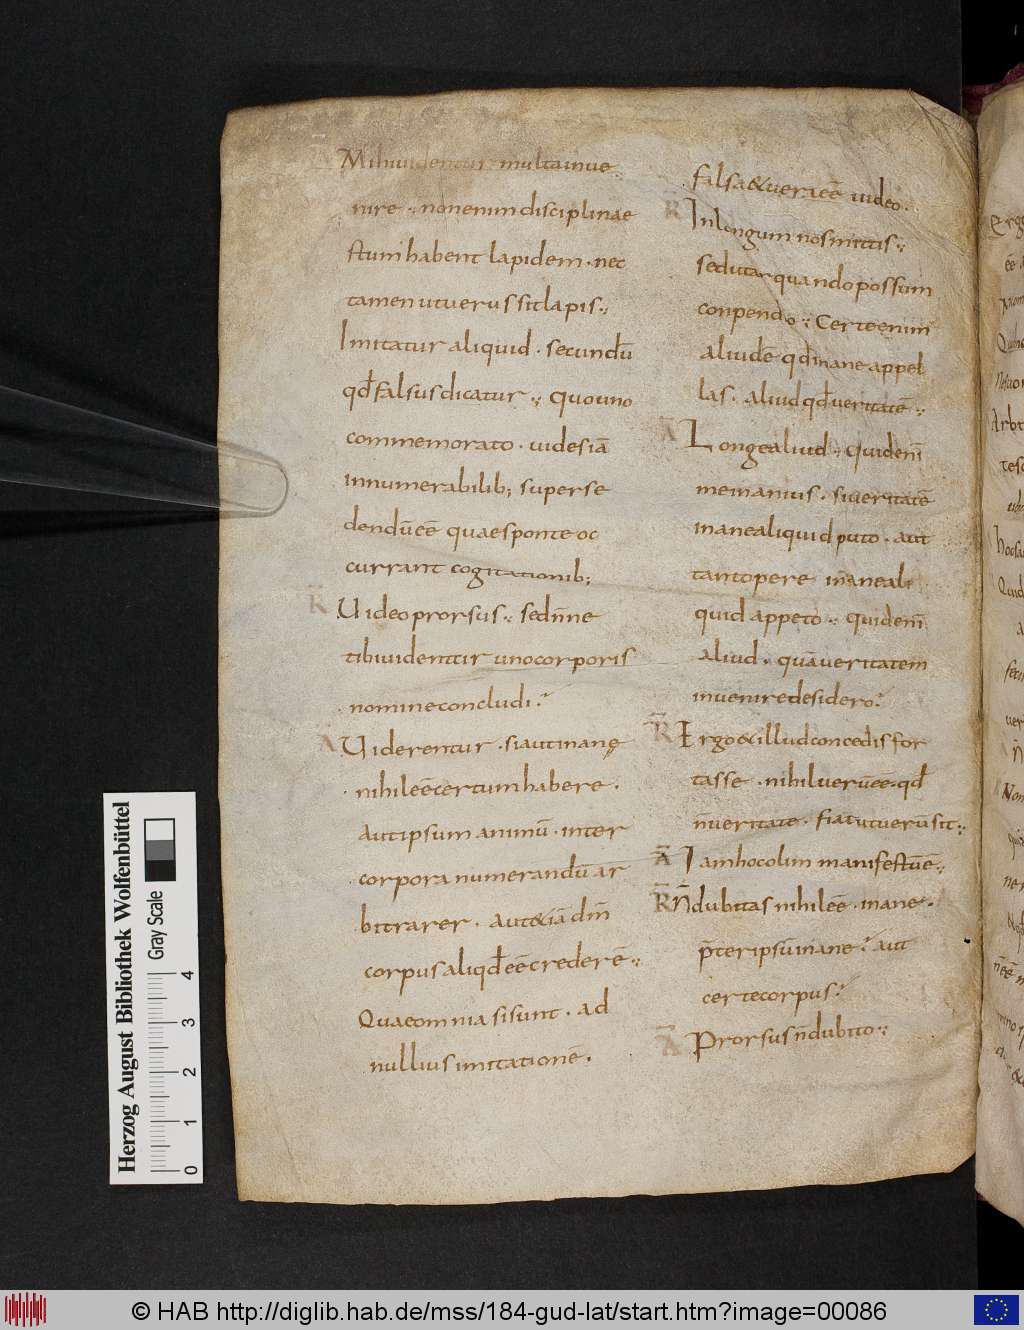 Mihi uidentur multa inue
nire · non enim disciplinae
stum habent lapidem · nec
tamen ut uerus sit lapis ·,
Imitatur aliquid · secundū
qđ falsus dicatur ·, quo uno
commemorato · uides iā
innumerabilib; superse
dendū eē quae sponte oc
currant cogitationib;
R̄ Uideo prorsus ·, sed n̄ne
tibi uidentur uno corporis
nomine concludi ?
Ā Uiderentur · si aut inane
nihil eē certum habere ·
aut ipsum animū · inter
corpora numerandū ar
bitrarer · aut & iā dm̄
corpus aliqđ eē crederē ·,
Quae omnia si sunt · ad
nullius imitationē ·
falsa & uera eē uideo ·
R̄ In longum nos mittis ·,
sed utar quando possum
conpendio ·, Certe enim
aliud ē qđ inane appel
las · aliud qđ ueritatē ·,
Ā Longe aliud ·, quid enī
me inanius · si ueritatē
inane aliquid puto · aut
tantopere inane ali
quid appeto ·, quid enī
aliud · quā ueritatem
inuenire desidero ?
R̄ Ergo & illud concedis for
tasse · nihil uerū eē · qđ
n̄ ueritate · fiat ut uerū sit ·,
Ā Iam hoc olim manifestū ē ·,
R̄ N̄ dubitas nihil eē · inane ·
p̄ter ipsū inane ? aut
certe corpus ?
Ā Prorsus n̄ dubito ·,
Herzog August Bibliothek Wolfenbüttel
Gray Scale
0 1 2 3 4
© HAB http://diglib.hab.de/mss/184-gud-lat/start.htm?image=00086